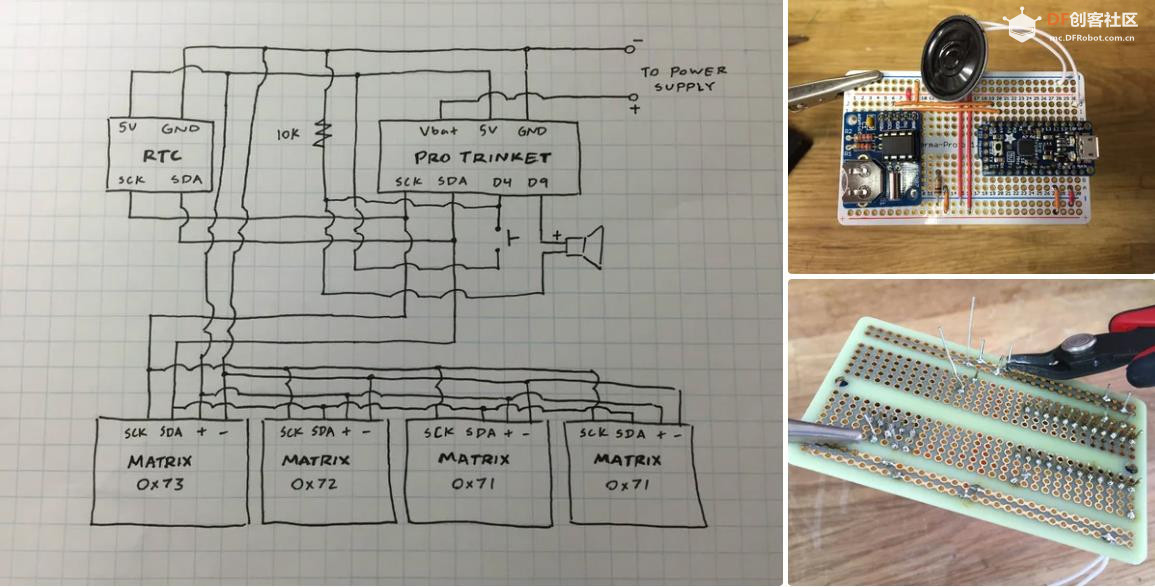 -
TO POWER
SUPPLY
+
5V GND
RTC
SCK SDA
10K
Vbat 5V GND
PRO TRINKET
SCK SDA D4 D9
+
SCK SDA + -
MATRIX
0x73
SCK SDA + -
MATRIX
0x72
SCK SDA + -
MATRIX
0x71
SCK SDA + -
MATRIX
0x71
DF创客社区
mc.DFRobot.com.cn
R2
R1
erma-Proto